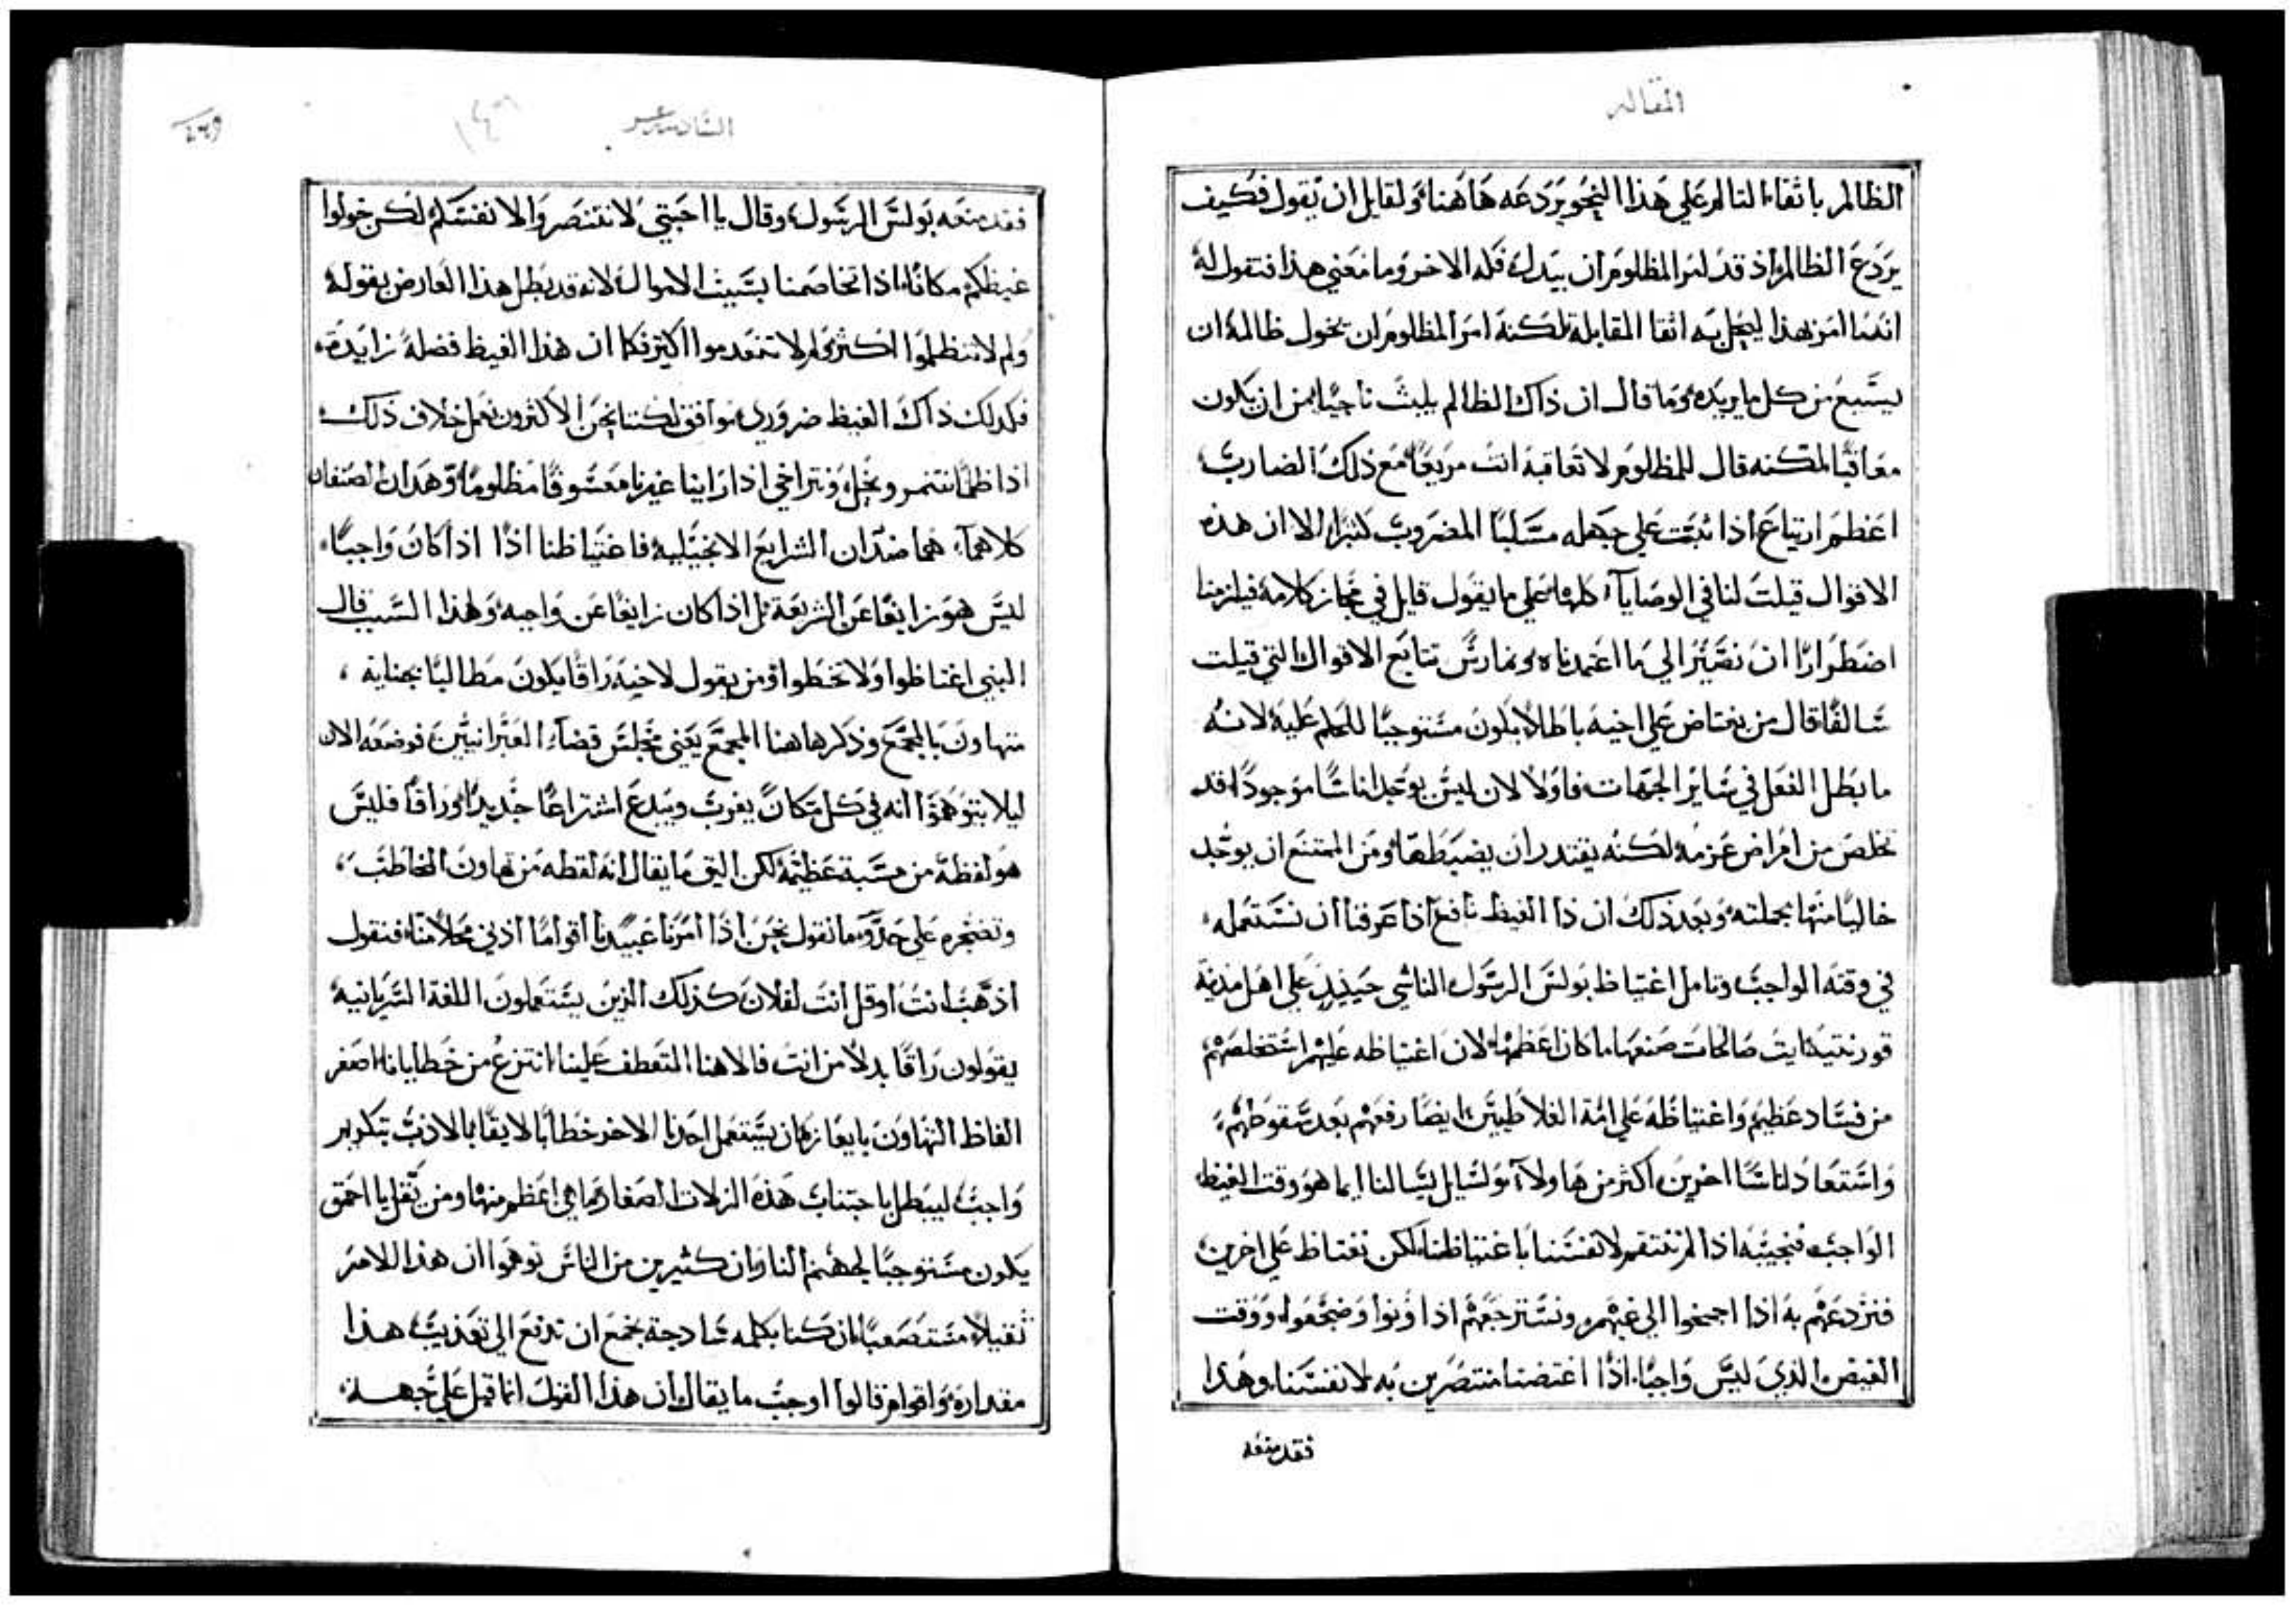 المقاله
الظالم باتقاء لنا لم علي هذا النحو يردعه هاهنا ولقايل ان يقول فكيف
يردع الظالم اذ قد امر المظلوم ان يبدل فكه الاخر وما معني هذا فنقول له
انما امر بهذا ليجل به اتقا المقابلة لكنه امر المظلوم ان يخول ظالمه ان
يشبع من كل ما يريده وما قال ان ذاك الظالم يلبث ناجيا من ان يكون
معاقبا لكنه قال للمظلوم لا تعاقبه انت مريعا مع ذلك الضارب
اعظم ارتياع اذا ثبت علي جهله مسليا المضروب كثيرا الا ان هذه
الاقوال قيلت لنا في الوصايا كلها علي ما يقول قايل في مجاز كلامه فيلزمنا
اضطرارا ان نصير الي ما اعتمدناه ونمارس تتابع الاقوال التي قيلت
سالفا قال من يغتاض علي اخيه باطلا يكون مستوجبا للحكم عليه لانه
ما بطل الفعل في ساير الجهات فاولا لان ليس يوجد اناسا موجودا قد
تخلص من امراض عزمه لكنه يقتدر ان يضبطها ومن الممتنع ان يوجد
خاليا منها بجملته وبعد ذلك ان ذا الغيظ نافع اذا عرفنا ان نستعمله
في وقته الواجب وتامل اغتياظ بولس الرسول الناشي حينيذ علي اهل مدينة
قورنتيه ايت صالحات صنعها ما كان اعظمها لان اغتياظه عليهم استخلصهم
من فساد عظيم واغتياظه علي امة الغلاطيين ايضا رفعهم بعد سقوطهم
واستعاد اناسا اخرين اكثر من هاولا ولسايل يسالنا ايما هو وقت الغيظ
الواجب فنجيبه اذا لم ننتقم لانفسنا باغتياظنا لكن نغتاظ علي اخرين
فنردعهم به اذا اجمحوا الي غيهم ونسترجعهم اذا ونوا وضجعوا ووقت
الغيض الذي ليس واجبا اذا اغتضنا منتصرين به لانفسنا وهذا
فقد منعه
السادسه عشر
فقد منعه بولس الرسول وقال يا احبتي لا تنتصروا لانفسكم لكن خولوا
غيظكم مكانا اذا تخاصمنا بسبب الاموال لانه قد بطل هذا العارض بقوله
ولم لا تنظلموا اكثر ولم لا تتعدموا اكثر فكما ان هذا الغيظ فضلة زايدة
فكذلك ذاك الغيظ ضروري موافق لكننا نحن الاكثرون نعمل خلاف ذلك
اذا ظلمنا نتنمر ونجل ونتراخي اذا راينا غيرنا معشوفا مظلوما وهذان الصنفان
كلاهما هما ضدان الشرايع الانجيلية فاغتياظنا اذا اذا كان واجبا
ليس هو زايغا عن الشريعة بل اذا كان زايغا عن واجبه ولهذا السبب قال
النبي اغتاظوا ولا تخطوا ومن يقول لاخيه راقا يكون مطالبا بجناية
متهاون بالمجمع وذكر هاهنا المجمع يعني مجلس قضاء العبرانيين فوضعه الان
ليلا يتوهموا انه في كل مكان يغرب ويبدع اشتراعا جديدا وراقا فليس
هو لفظة من مسبة عظيمة لكن اليق ما يقال انه لفظه من تهاون المخاطب
وتضجره علي حد ما نقول نحن اذا امرنا عبيدنا اقواما اذني محلا منا فنقول
اذهب انت او قل انت لفلان كذلك الذين يستعملون اللغة السريانية
يقولون راقا بدلا من انت فالاهنا المتعطف علينا انتزع من خطايانا اصغر
الفاظ التهاون بايعازه ان يستعمل احدنا الاخر خطابا لايقا بالادب بتكريم
واجب ليبطل باجتناب هذه الزلات الصغار ما هي اعظم منها ومن يقل يا احمق
يكون مستوجبا لجهنم النار وان كثيرين من الناس توهموا ان هذا الامر
ثقيلا مستصعبا ان كنا بكلمه سادجة نجمع ان ندفع الي تعذيب هذا
مقداره واقوام قالوا اوجب ما يقال ان هذا القول انما قيل علي جهة